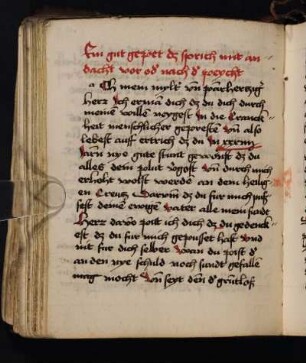 Ein gut gepet dz sprich mit an
dacht vor od nach d peycht
O mein mylt vn parhertzig
herz Ich erman dich dz du dich durch
meine wille neygest in die kranck
heit menschlicher geprechē vn also
lebest auff ertrich dz du in xxxiij
Jarn nye gute stund gewonst dz du
alles dein plut v̄gost vn durch mich
erhoht wolst werde an dem heilig
en Creutz darum dz du fur mich puß
test deine ewige vater alle mein sund
Herz daro pitt ich dich dz du gedenck
est dz du fur mich gepusset hast vnd
nit fur dich selber wan du
an den nye schuld noch sundt gefalle
mag mocht vn seyt den d grutloß